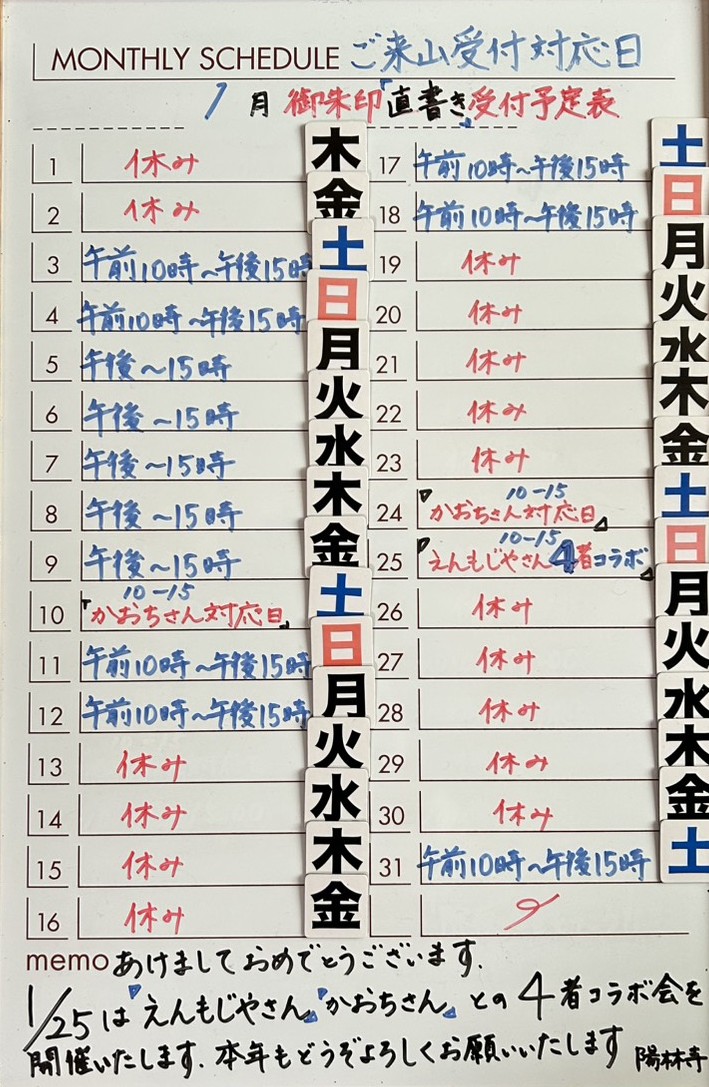 MONTHLY SCHEDULE ご来山受付対応日
1月 御朱印『直書き』受付予定表
1 休み 木
2 休み 金
3 午前10時~午後15時 土
4 午前10時~午後15時 日
5 午後~15時 月
6 午後~15時 火
7 午後~15時 水
8 午後~15時 木
9 午後~15時 金
10 10-15 『かおちさん対応日』 土
11 午前10時~午後15時 日
12 午前10時~午後15時 月
13 休み 火
14 休み 水
15 休み 木
16 休み 金
17 午前10時~午後15時 土
18 午前10時~午後15時 日
19 休み 月
20 休み 火
21 休み 水
22 休み 木
23 休み 金
24 10-15 『かおちさん対応日』 土
25 10-15 『えんもじやさん4者コラボ』 日
26 休み 月
27 休み 火
28 休み 水
29 休み 木
30 休み 金
31 午前10時~午後15時 土
memo あけましておめでとうございます.
1/25は『えんもじやさん』『かおちさん』との4者コラボ会を
開催いたします.本年もどうぞよろしくお願いいたします 陽林寺